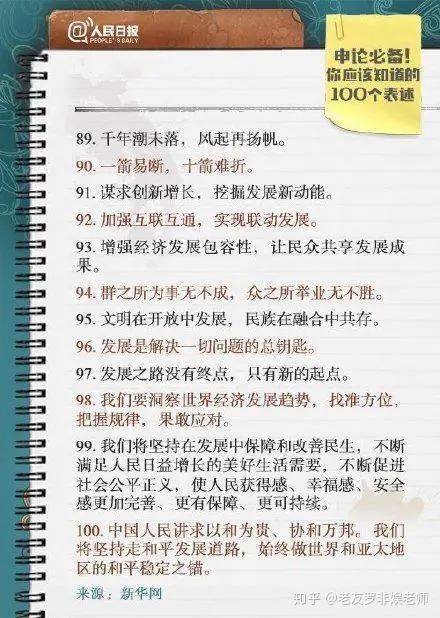 @人民日报
PEOPLE'S DAILY
申论必备！
你应该知道的
100个表述
89. 千年潮未落，风起再扬帆。
90. 一箭易断，十箭难折。
91. 谋求创新增长，挖掘发展新动能。
92. 加强互联互通，实现联动发展。
93. 增强经济发展包容性，让民众共享发展成
果。
94. 群之所为事无不成，众之所举业无不胜。
95. 文明在开放中发展，民族在融合中共存。
96. 发展是解决一切问题的总钥匙。
97. 发展之路没有终点，只有新的起点。
98. 我们要洞察世界经济发展趋势，找准方位，
把握规律，果敢应对。
99. 我们将坚持在发展中保障和改善民生，不断
满足人民日益增长的美好生活需要，不断促进
社会公平正义，使人民获得感、幸福感、安全
感更加完善、更有保障、更可持续。
100. 中国人民讲求以和为贵、协和万邦。我们
将坚持走和平发展道路，始终做世界和亚太地
区的和平稳定之锚。
来源：新华网
知乎 @老友罗非娱老师